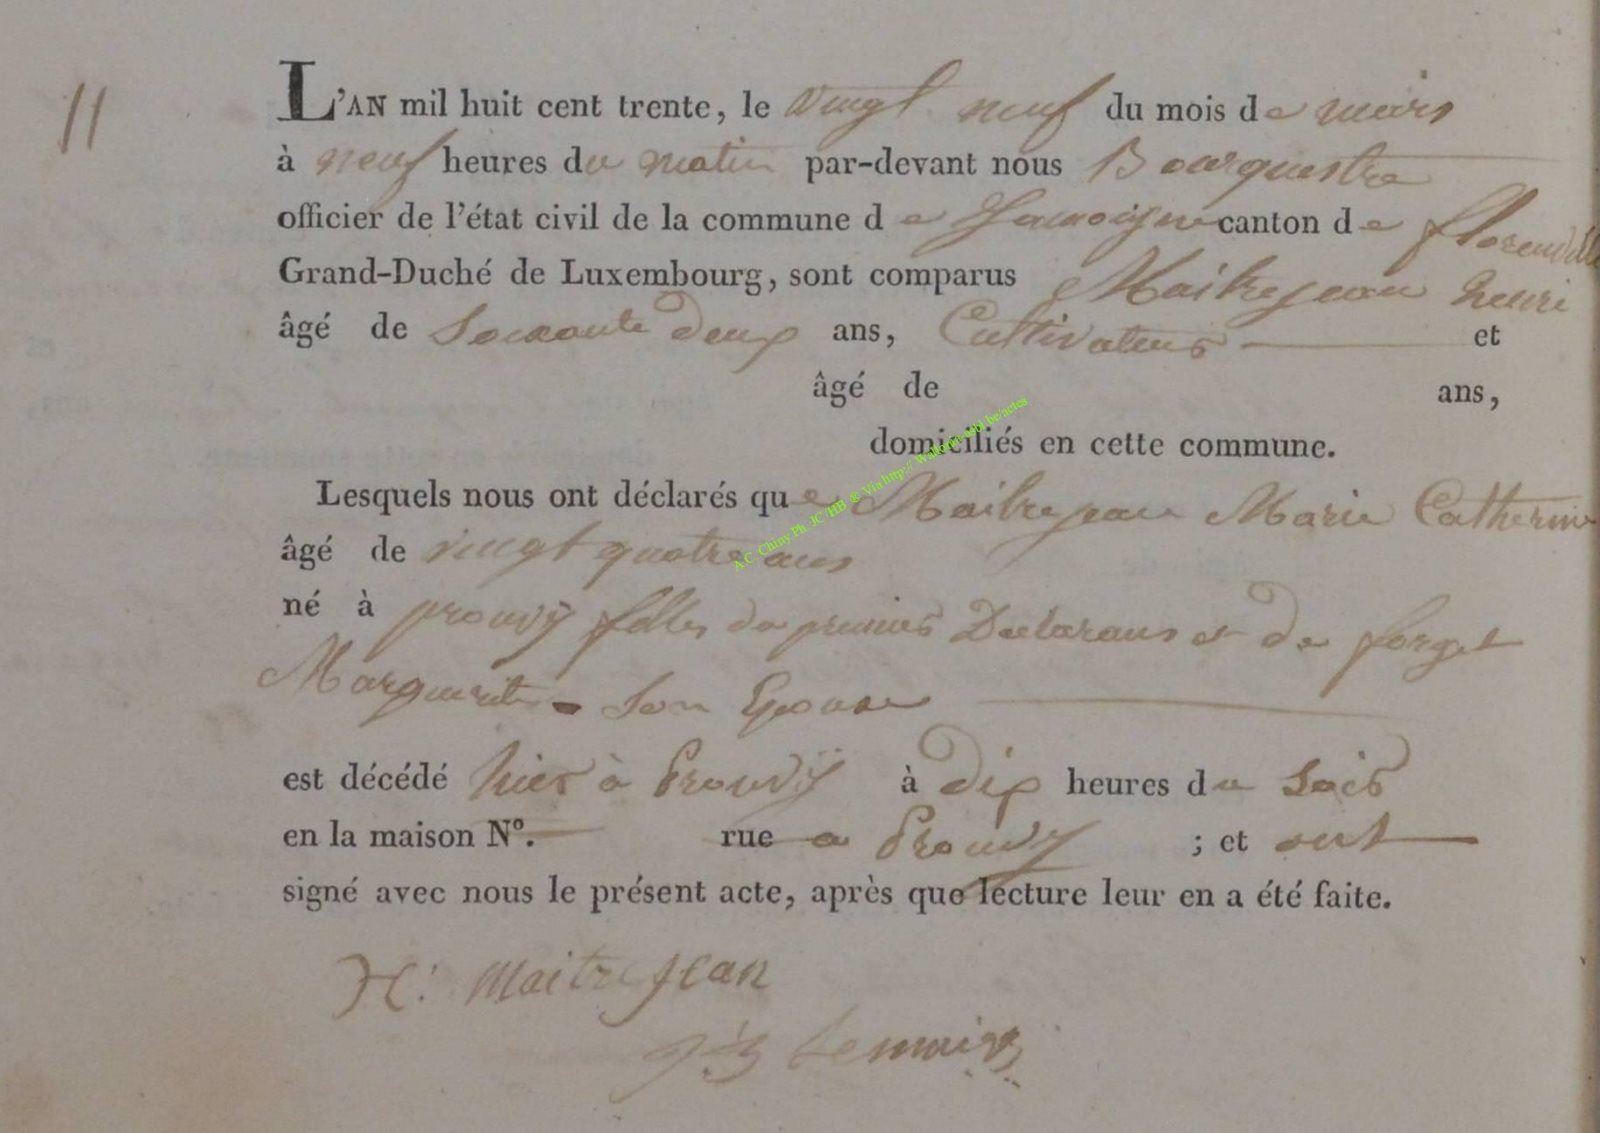 11
L'AN mil huit cent trente, le vingt neuf du mois de mars
à neuf heures du matin par-devant nous Bourguestre
officier de l'état civil de la commune de Jamoigne canton de florenville
Grand-Duché de Luxembourg, sont comparus Maitrejean henri
âgé de Soixante deux ans, Cultivateur et
âgé de ans,
domiciliés en cette commune.
Lesquels nous ont déclarés que Maitrejean Marie Catherine
âgé de vingt quatre ans
né à prouvÿ fille du premier Declarans et de forget
Marguerite Son Epouse
est décédé hier à Prouvÿ à dix heures du Soir
en la maison Nº. rue a Prouvy ; et ont
signé avec nous le présent acte, après que lecture leur en a été faite.
H. Maitrejean
Lemaire
A.C. Chiny Ph. JC HB @ Via http:// Wallonia asbl.be/actes